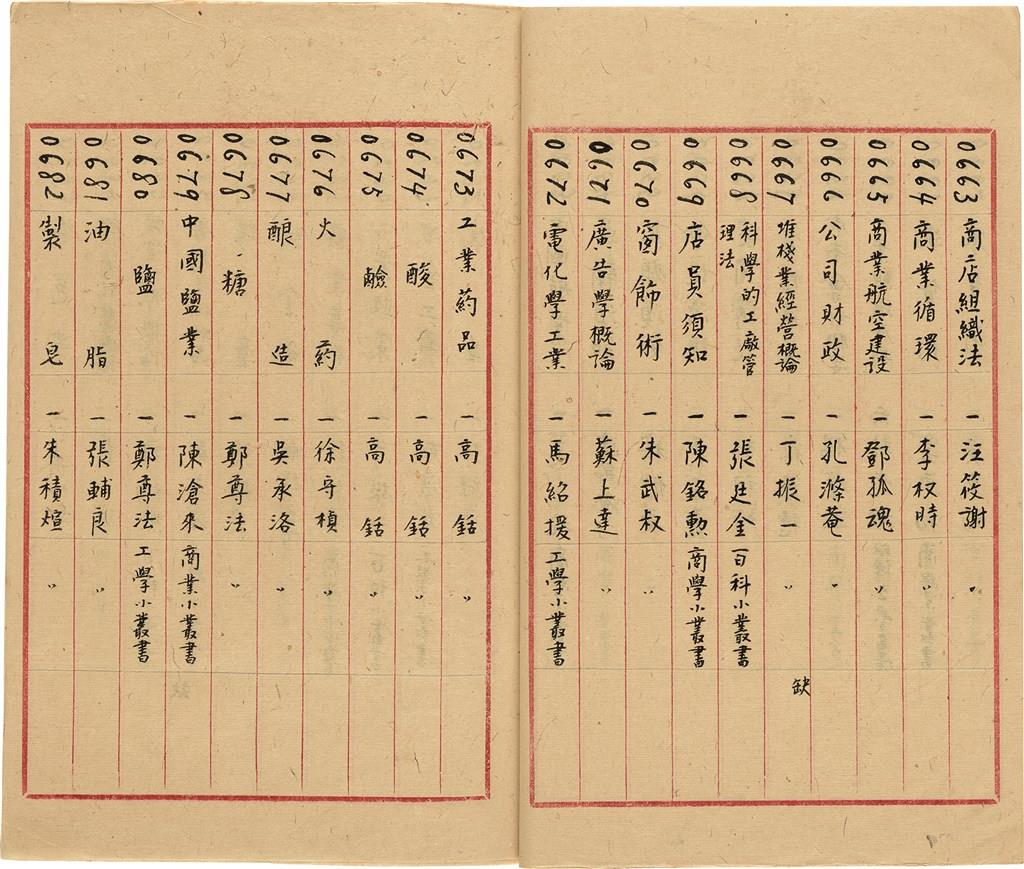 0663 商店組織法 一 汪筱謝 〃
0664 商業循環 一 李权時 〃
0665 商業航空建设 一 鄧孤魂 〃
0666 公司财政 一 孔滌菴 〃
0667 堆棧業經營概論 一 丁振一 〃 缺
0668 科學的工廠管理法 一 張廷金 百科小叢書
0669 店員须知 一 陳銘勳 商學小叢書
0670 窗飾術 一 朱武叔 〃
0671 廣告學概論 一 蘇上達 〃
0672 電化學工業 一 馬紹援 工學小叢書
0673 工業葯品 一 高銛 〃
0674 酸 一 高銛 〃
0675 鹼 一 高銛 〃
0676 火葯 一 徐守楨 〃
0677 酿造 一 吳承洛 〃
0678 糖 一 鄭尊法 〃
0679 中國鹽業 一 陳滄來 商業小叢書
0680 鹽 一 鄭尊法 工學小叢書
0681 油脂 一 張輔良 〃
0682 製皂 一 朱積煊 〃